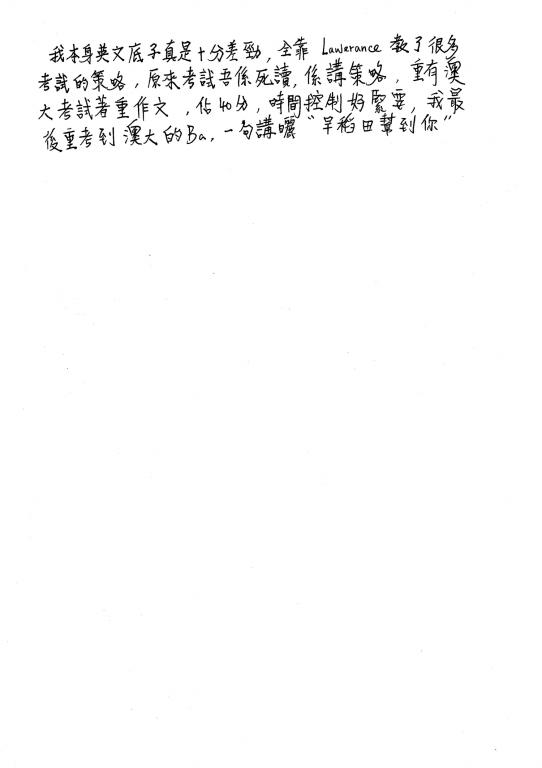 我本身英文底子真是十分差勁，全靠 Lawerance 教了很多
考試的策略，原來考試吾係死讀，係講策略，重有澳
大考試著重作文，佔40分，時間控制好緊要，我最
後重考到澳大的Ba，一句講曬“早稻田幫到你”